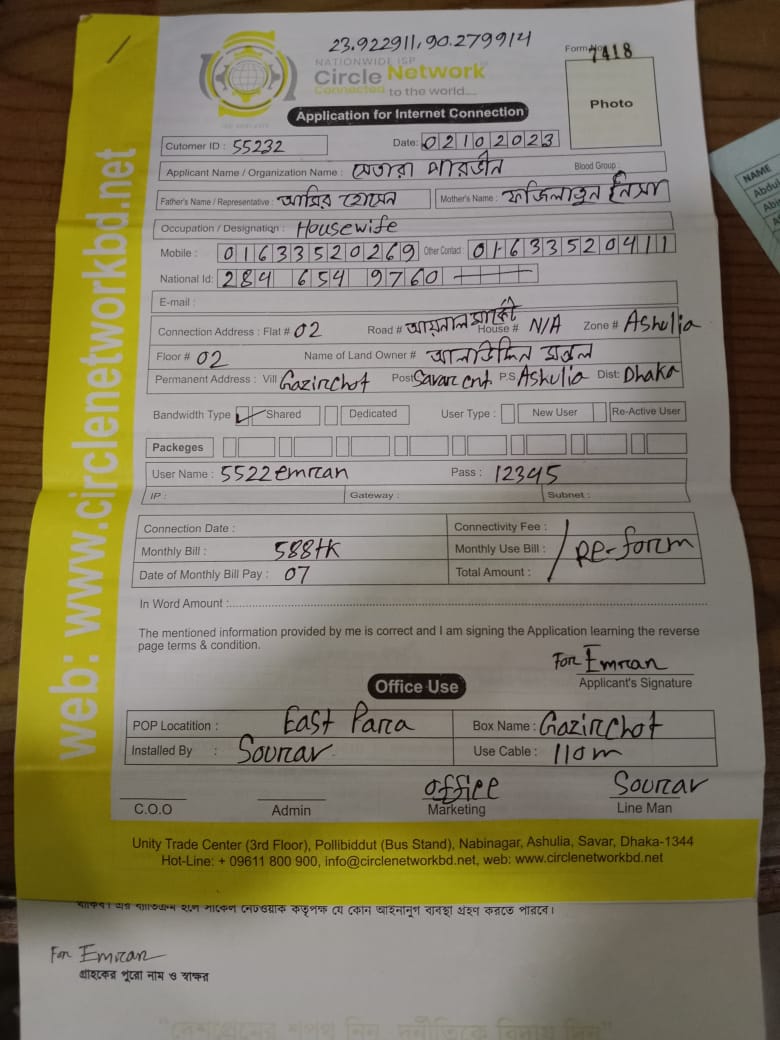 23.922911, 90.279914
Form No 7418
NATIONWIDE ISP
Circle Network
Connected to the world....
Photo
Application for Internet Connection
Cutomer ID : 55232 Date: 02102023
Applicant Name / Organization Name : সেতারা পারভীন Blood Group :
Father's Name / Representative : আমির হোসেন Mother's Name : ফজিলাতুন নিসা
Occupation / Designation : Housewife
Mobile : 01633520269 Other Contact : 01633520411
National Id: 284 654 9760
E-mail :
Connection Address : Flat # 02 Road # আয়নাল মার্কেট House # N/A Zone # Ashulia
Floor # 02 Name of Land Owner # আলাউদ্দিন মন্ডল
Permanent Address : Vill Gazirchot Post Savar cnt P.S Ashulia Dist: Dhaka
Bandwidth Type Shared Dedicated User Type : New User Re-Active User
Packeges
User Name : 5522emran Pass : 12345
IP : Gateway : Subnet :
Connection Date : Connectivity Fee :
Monthly Bill : 588tk Monthly Use Bill : Re-form
Date of Monthly Bill Pay : 07 Total Amount :
In Word Amount :
The mentioned information provided by me is correct and I am signing the Application learning the reverse
page terms & condition.
For Emran
Applicant's Signature
Office Use
POP Locatition : East Para Box Name : Gazirchot
Installed By : Sourav Use Cable : 110m
office Sourav
C.O.O Admin Marketing Line Man
Unity Trade Center (3rd Floor), Pollibiddut (Bus Stand), Nabinagar, Ashulia, Savar, Dhaka-1344
Hot-Line: + 09611 800 900, info@circlenetworkbd.net, web: www.circlenetworkbd.net
web: www.circlenetworkbd.net
হলে সার্কেল নেটওয়ার্ক কতৃপক্ষ যে কোন আইনানুগ ব্যবস্থা গ্রহণ করতে পারবে।
For Emran
গ্রাহকের পুরো নাম ও স্বাক্ষর
"দেশপ্রেমের শপথ নিন, দুর্নীতিকে বিদায় দিন"
NAME
Abdul